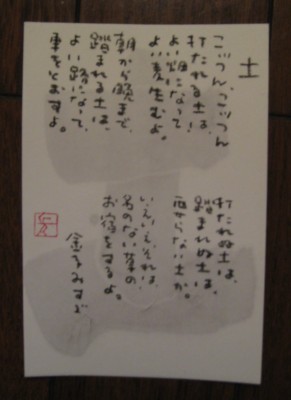 土
こッつん、こッつん
打たれる土は、
よい畑になって
よい麦生むよ。
朝から晩まで、
踏まれる土は、
よい路になって、
車をとおすよ。
打たれぬ土は、
踏まれぬ土は、
要らない土か。
いえいえそれは、
名のない草の
お宿をするよ。
金子みすゞ